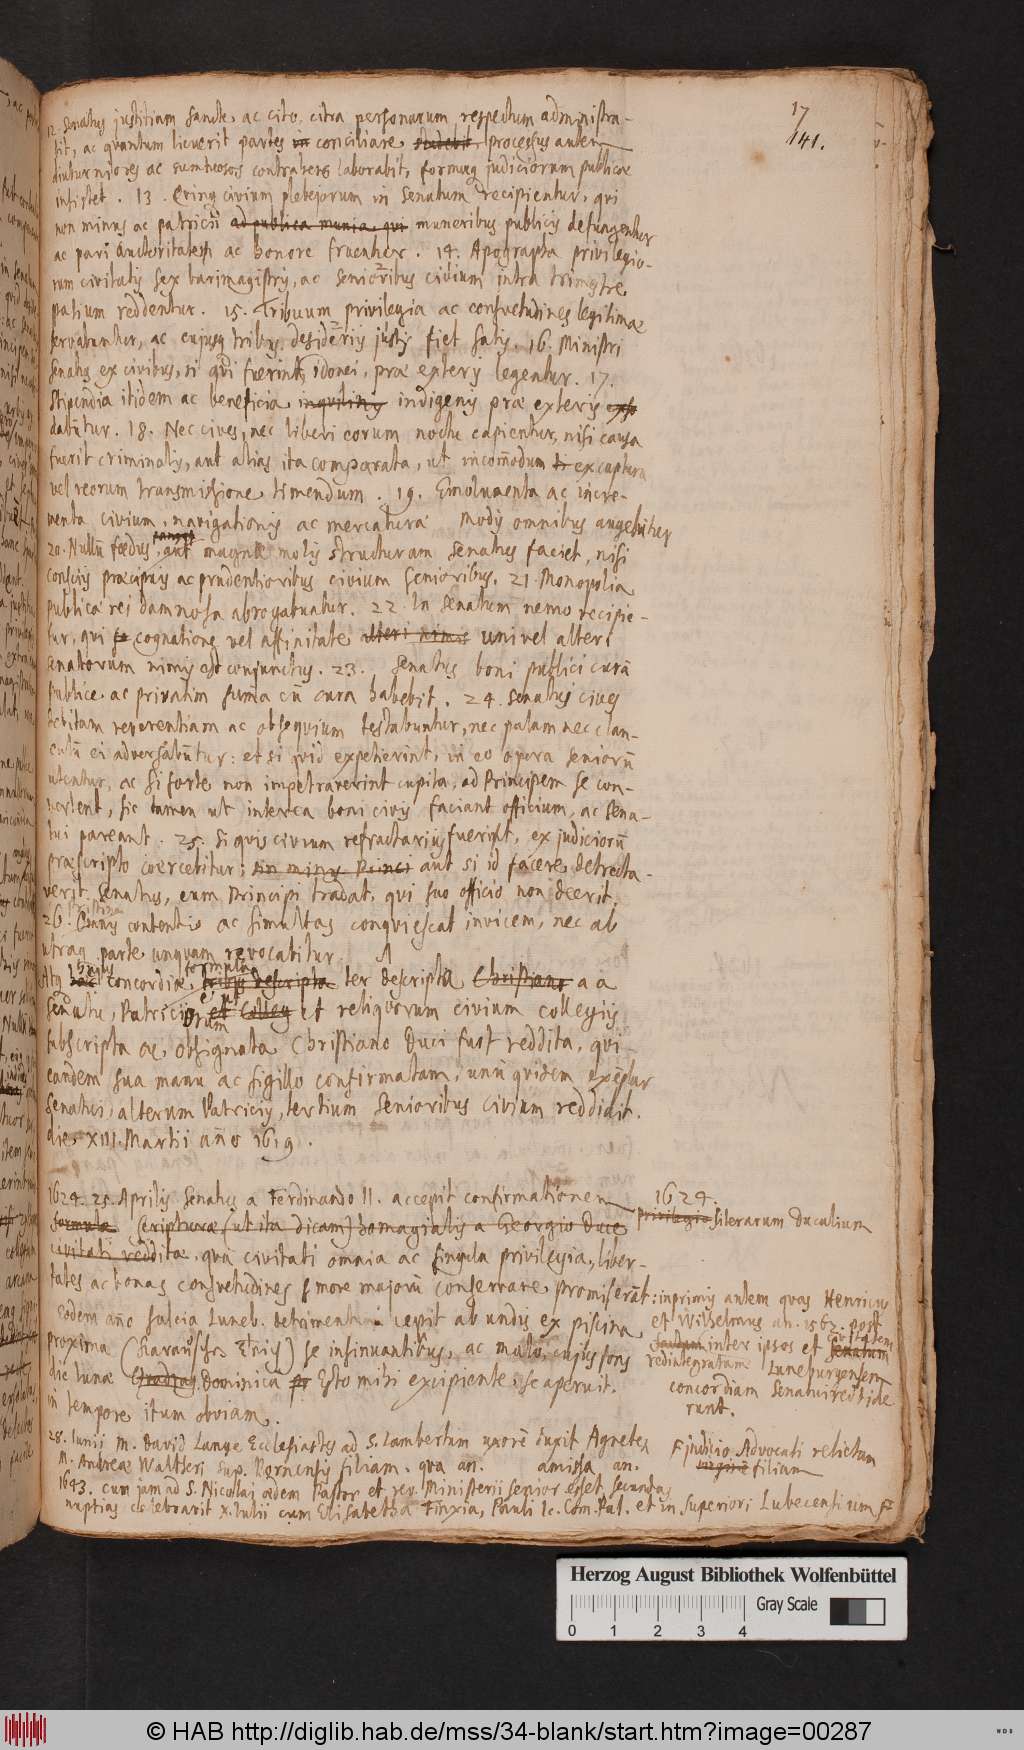 17
141.
12. Senatus justitiam sancte, ac cito, citra personarum respectum administra-
bit, ac quantum licuerit partes in conciliare studebit processus autem
diuturniores ac sumtuosos contrahere laborabit, formaq judiciorum publicae
insistet. 13. Eving civium plebejorum in Senatum recipientur, qui
non minus ac patricii ad publica munia, qui muneribus publicis defungentur
ac pari auctoritate ac honore fruentur. 14. Apographa privilegio-
rum civitatis sex barimagistris, ac senioribus civium intra trimestre
spatium reddentur. 15. Tribuum privilegia ac consuetudines legitimae
servabuntur, ac cujusq tribus desideriis justis fiet satis. 16. Ministri
Senatus ex civibus, si qui fuerint idonei, prae exteris legentur. 17.
Stipendia itidem ac beneficia inquilinis indigenis prae exteris
dabūtur. 18. Nec cives, nec liberi eorum noctu capientur, nisi causa
fuerit criminalis, aut alias ita comparata, ut incom̄odum ex captura
vel reorum transmissione timendum. 19. Emolumenta ac incre-
menta civium, navigationis ac mercaturae modis omnibus augebitur
20. Nullū foedus panget aut magnae molis structuram Senatus faciet, nisi
consciis praecipuis ac prudentioribus civium senioribus. 21. Monopolia
publicae rei damnosa abrogabuntur. 22. In Senatum nemo recipie-
tur, qui cognatione vel affinitate alteri nimis uni vel alteri
senatorum nimis est conjunctus. 23. Senatus boni publici curā
publice ac privatim summa cū cura habebit. 24. Senatui cives
debitam reverentiam ac obsequium testabuntur, nec palam nec clan-
culū ei adversabūtur: et si quid expetierint, in eo opera seniorū
utentur, ac si forte non impetraverint cupita, ad Principem se con-
vertent, sic tamen ut interea boni civis faciant officium, ac Sena-
tui pareant. 25. Si quis civium refractarius fuerit, ex judiciorū
praescripto coercebitur; sin minus Princi aut si id facere detrecta-
verit Senatus, eum Principi tradat, qui suo officio non deerit.
26. Omnis contentio ac simultas conquiescat invicem, nec ab
utraq parte unquam revocabitur.
Atq hujus concordiae formula tribus descripta ter descripta Christiano a
Senatu, Patriciis et Colleg et reliquorum civium collegiis
subscripta ac obsignata Christiano Duci fuit reddita, qui
eandem sua manu ac sigillo confirmatam, unū quidem exēplar
Senatui, alterum Patriciis, tertium Senioribus civium reddidit.
die XIII. Martii año 1619.
1624. 25. Aprilis Senatus a Ferdinando II. accepit confirmationem
formulae Scripturae (ut ita dicam) homagialis a Georgio Duce
civitati redditae. qua civitati omnia ac singula privilegia, liber-
tates ac bonas consvetudines more majorū conservare promiserāt:
1624.
privilegio literarum Ducalium
inprimis autem quas Henricus
et Wilhelmus an. 1562. post
inter ipsos et Senatum civitatem
redintegratam Lunepurgensem
concordiam Senatui reddide
runt.
Eodem año salcia Luneb. detrimentum cepit ab undis ex piscina
proxima (Karautschen Teich) se insinuantibus, ac malo, cujus fons
die lunae Quadrag. Dominica Esto mihi excipiente, se aperuit.
in tempore itum obviam.
28. Iunii M. David Lange Ecclesiastes ad S. Lambertum uxorē duxit Agnetem
M. Andreae Waltheri Sup. filiam. qua an. amissa an.
1643. cum jam ad S. Nicolai aedem Pastor et rev. Ministerii senior esset, secundas
nuptias celebravit X. Iulii cum Elisabetha Finxia, Pauli Ic. Com. Pal. et in superiori Lubecensium F
F judicio Advocati relictam
filiam
Herzog August Bibliothek Wolfenbüttel
Gray Scale
0 1 2 3 4
© HAB http://diglib.hab.de/mss/34-blank/start.htm?image=00287
WDB